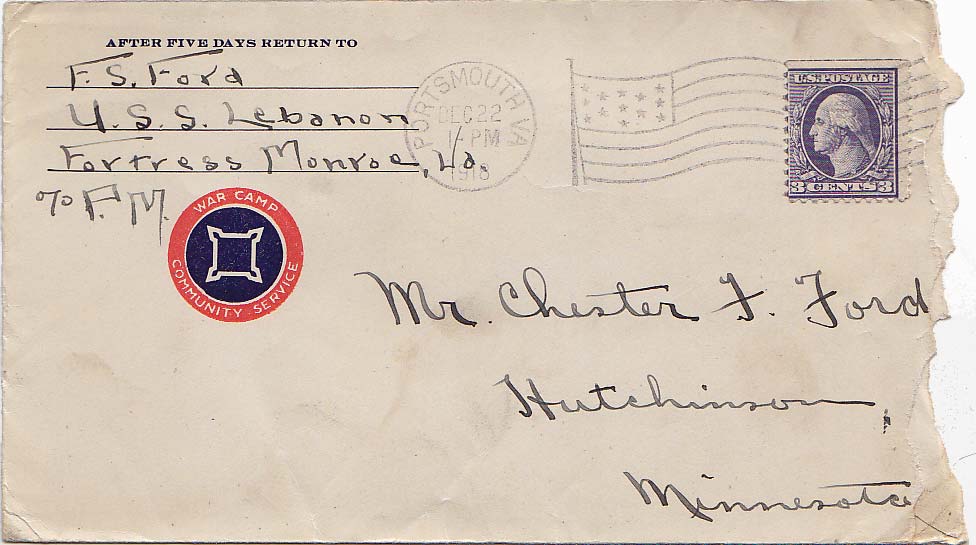 AFTER FIVE DAYS RETURN TO
F. S. Ford
U. S. S. Lebanon
Fortress Monroe, Va.
c/o P. M.
WAR CAMP
COMMUNITY SERVICE
PORTSMOUTH VA
DEC 22
1 - PM
1918
U.S. POSTAGE
3 CENTS 3
Mr. Chester F. Ford
Hutchinson,
Minnesota